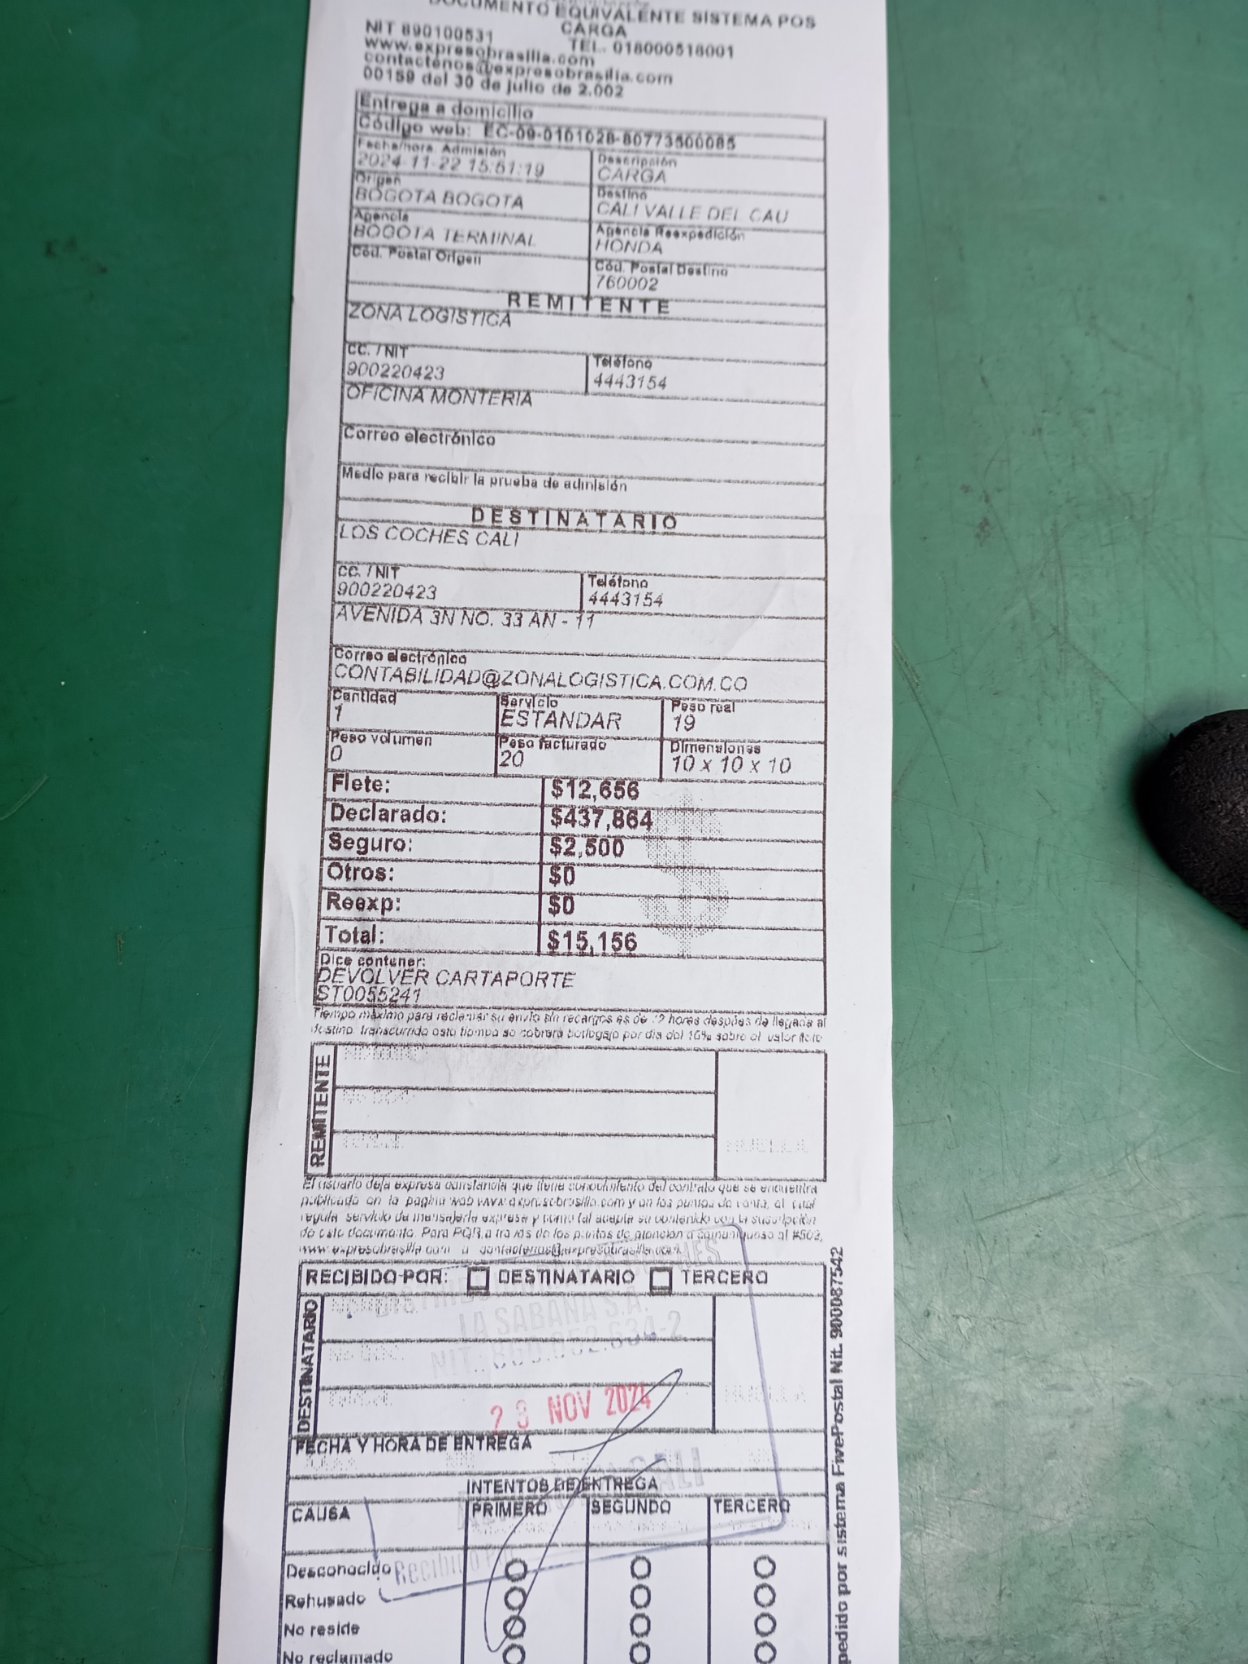 DOCUMENTO EQUIVALENTE SISTEMA POS
CARGA
NIT 890100531 TEL. 018000518001
www.expresobrasilia.com
contactenos@expresobrasilia.com
00159 del 30 de julio de 2.002
Entrega a domicilio
Código web: EC-09-0101028-80773500085
Fecha/hora Admisión Descripción
2024-11-22 15:51:19 CARGA
Origen Destino
BOGOTA BOGOTA CALI VALLE DEL CAU
Agencia Agencia Reexpedición
BOGOTA TERMINAL HONDA
Cód. Postal Origen Cód. Postal Destino
760002
REMITENTE
ZONA LOGISTICA
CC. / NIT Teléfono
900220423 4443154
OFICINA MONTERIA
Correo electrónico
Medio para recibir la prueba de admisión
DESTINATARIO
LOS COCHES CALI
CC. / NIT Teléfono
900220423 4443154
AVENIDA 3N NO. 33 AN - 11
Correo electrónico
CONTABILIDAD@ZONALOGISTICA.COM.CO
Cantidad Servicio Peso real
1 ESTANDAR 19
Peso volumen Peso facturado Dimensiones
0 20 10 x 10 x 10
Flete: $12,656
Declarado: $437,864
Seguro: $2,500
Otros: $0
Reexp: $0
Total: $15,156
Dice contener:
DEVOLVER CARTAPORTE
ST0055241
Tiempo máximo para reclamar su envío sin recargos es de 72 horas después de llegada al
destino, transcurrido este tiempo se cobrará bodegaje por día del 10% sobre el valor flete
REMITENTE
HUELLA
El usuario deja expresa constancia que tiene conocimiento del contrato que se encuentra
publicado en la pagina web www.expresobrasilia.com y en los puntos de venta, el cual
regula servicio de mensajería expresa y como tal acepta su contenido con la suscripción
de este documento. Para PQR a través de los puntos de atención o comuniquese al #502,
www.expresobrasilia.com o contactenos@expresobrasilia.com
RECIBIDO POR: DESTINATARIO TERCERO
DESTINATARIO
LA SABANA S.A.
NIT.: 860.032.634-2
HUELLA
NOV 2024
FECHA Y HORA DE ENTREGA
CALI
INTENTOS DE ENTREGA
CAUSA PRIMERO SEGUNDO TERCERO
Recibido Por
Desconocido
Rehusado
No reside
No reclamado
pedido por sistema FivePostal Nit. 900087542